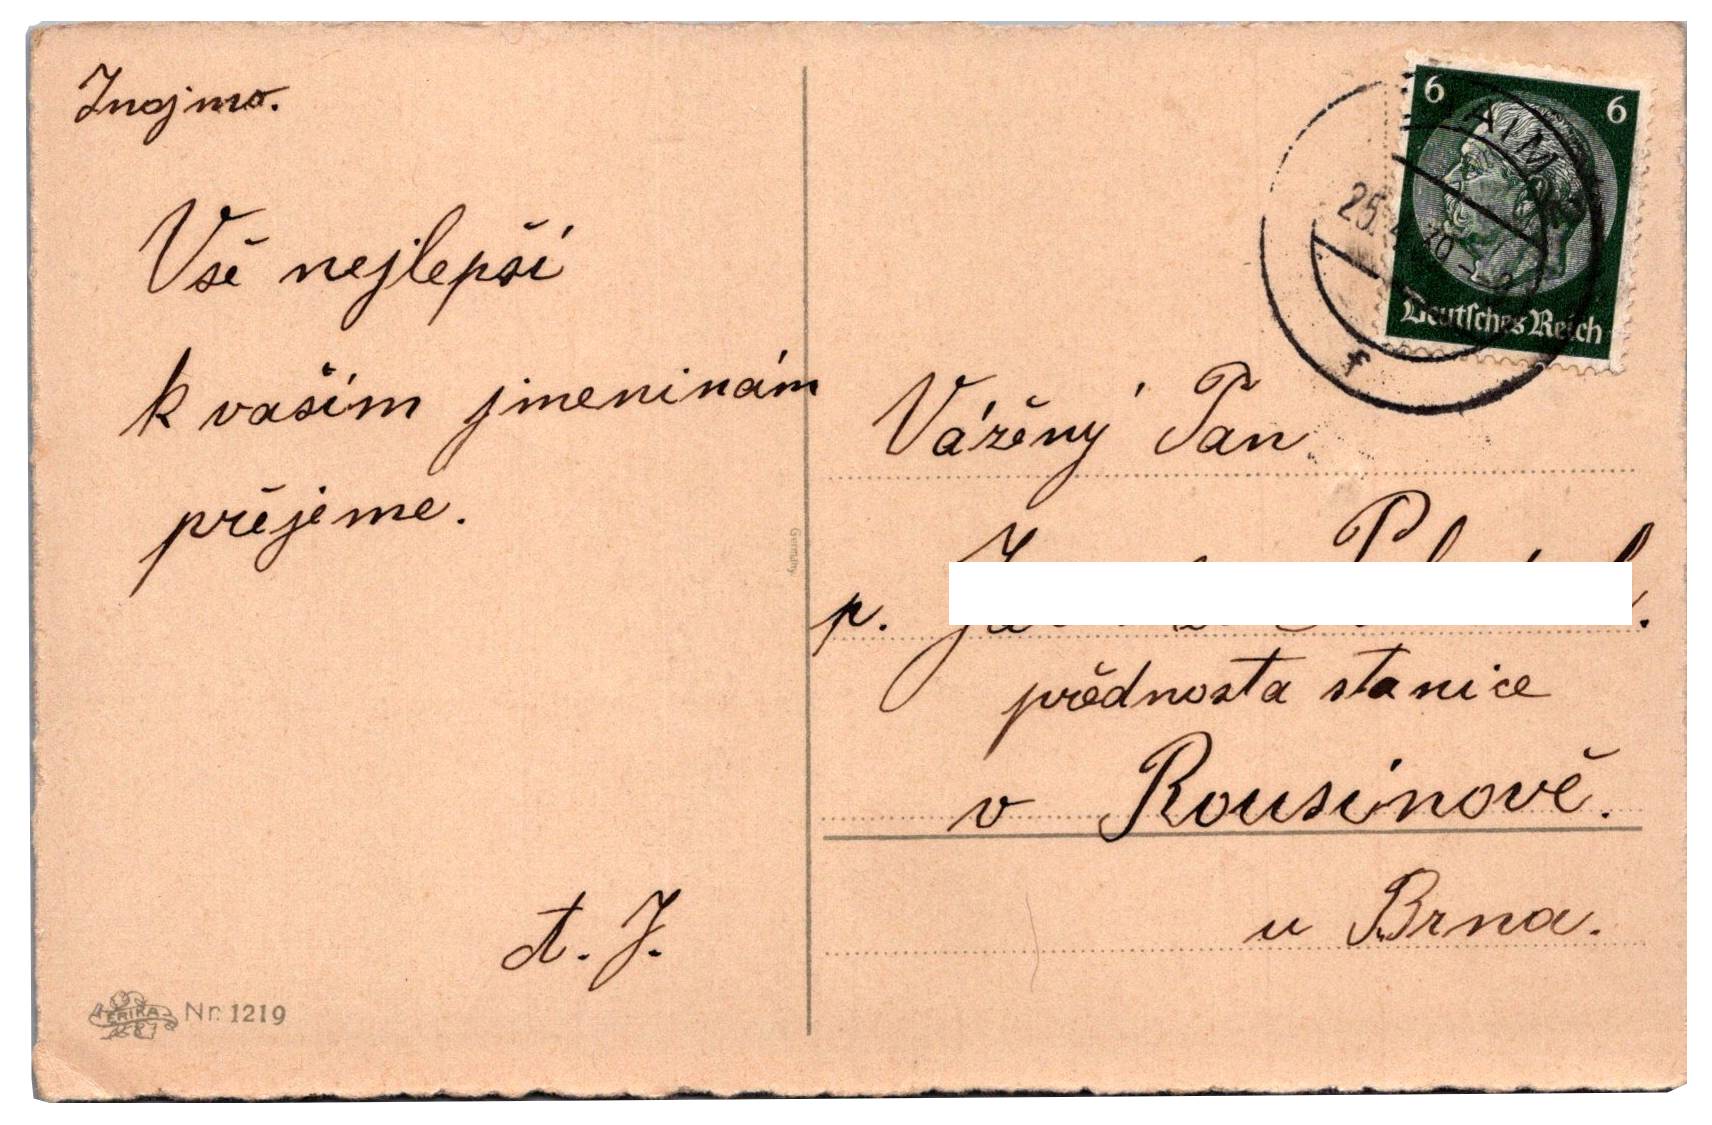 Znojmo.
Vše nejlepší
k vašim jmeninám
přejeme.
A. J.
ERIKA Nr. 1219
Germany
6 6
Deutsches Reich
f
Vážený Pan
p.
přednosta stanice
v Rousinově.
u Brna.